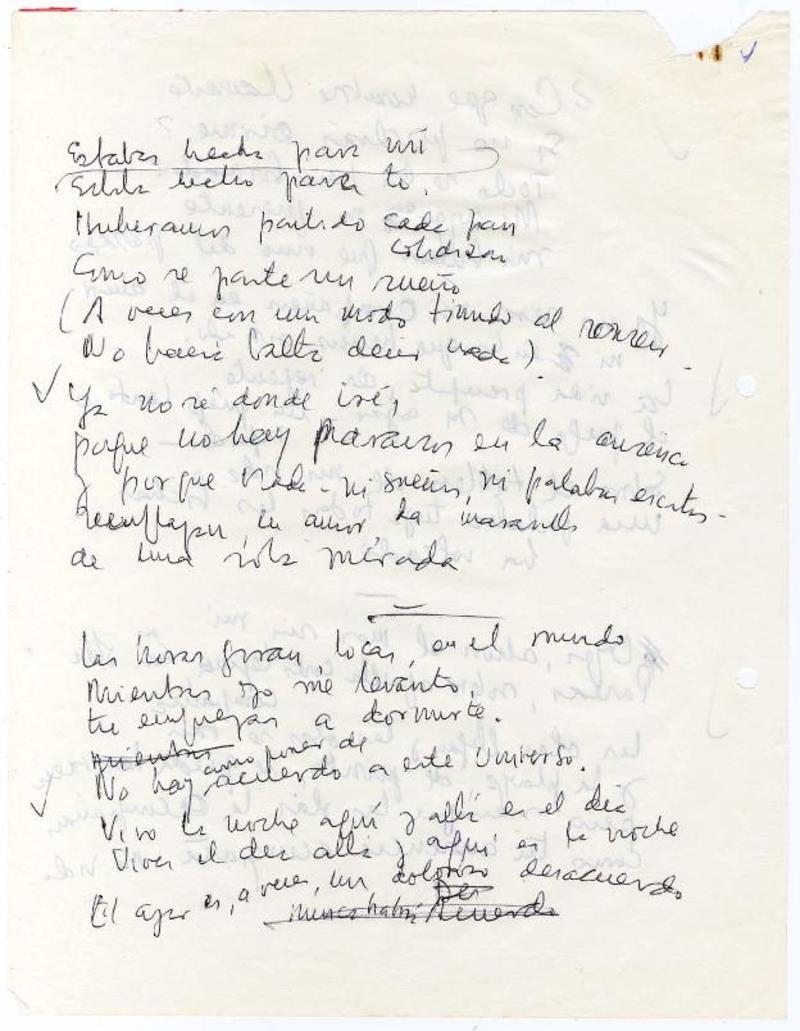 Estabas hecha para mí
Estaba hecho para ti.
Hubiéramos partido cada pan
cotidiano
Como se parte un sueño
(A veces con un modo tímido al sonreír.
No hacía falta decir nada).
Ya no sé donde iré,
porque no hay paraísos en la ausencia
y porque nada - ni sueños, ni palabras escritas -
reemplazan, en amor la maravilla
de una sola mirada
Las horas giran, locas, en el mundo
Mientras yo me levanto,
tu empiezas a dormirte.
Mientras
No hay como poner de acuerdo a este Universo.
Vivo la noche aquí y allá es el día
Vives el día allá y aquí es la noche
El ayer es, a veces, un doloroso desacuerdo
Des
nunca habrá Acuerdo